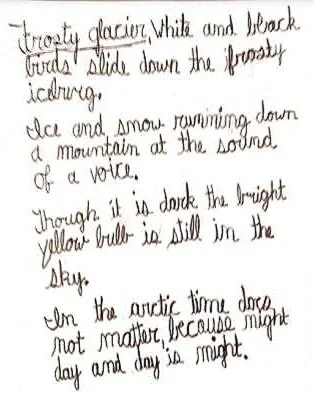 Frosty glacier, White and black
birds slide down the frosty
iceburg.
Ice and snow running down
a mountain at the sound
of a voice.
Though it is dark the bright
yellow bulb is still in the
sky.
In the arctic time does
not matter, because night
day and day is night.